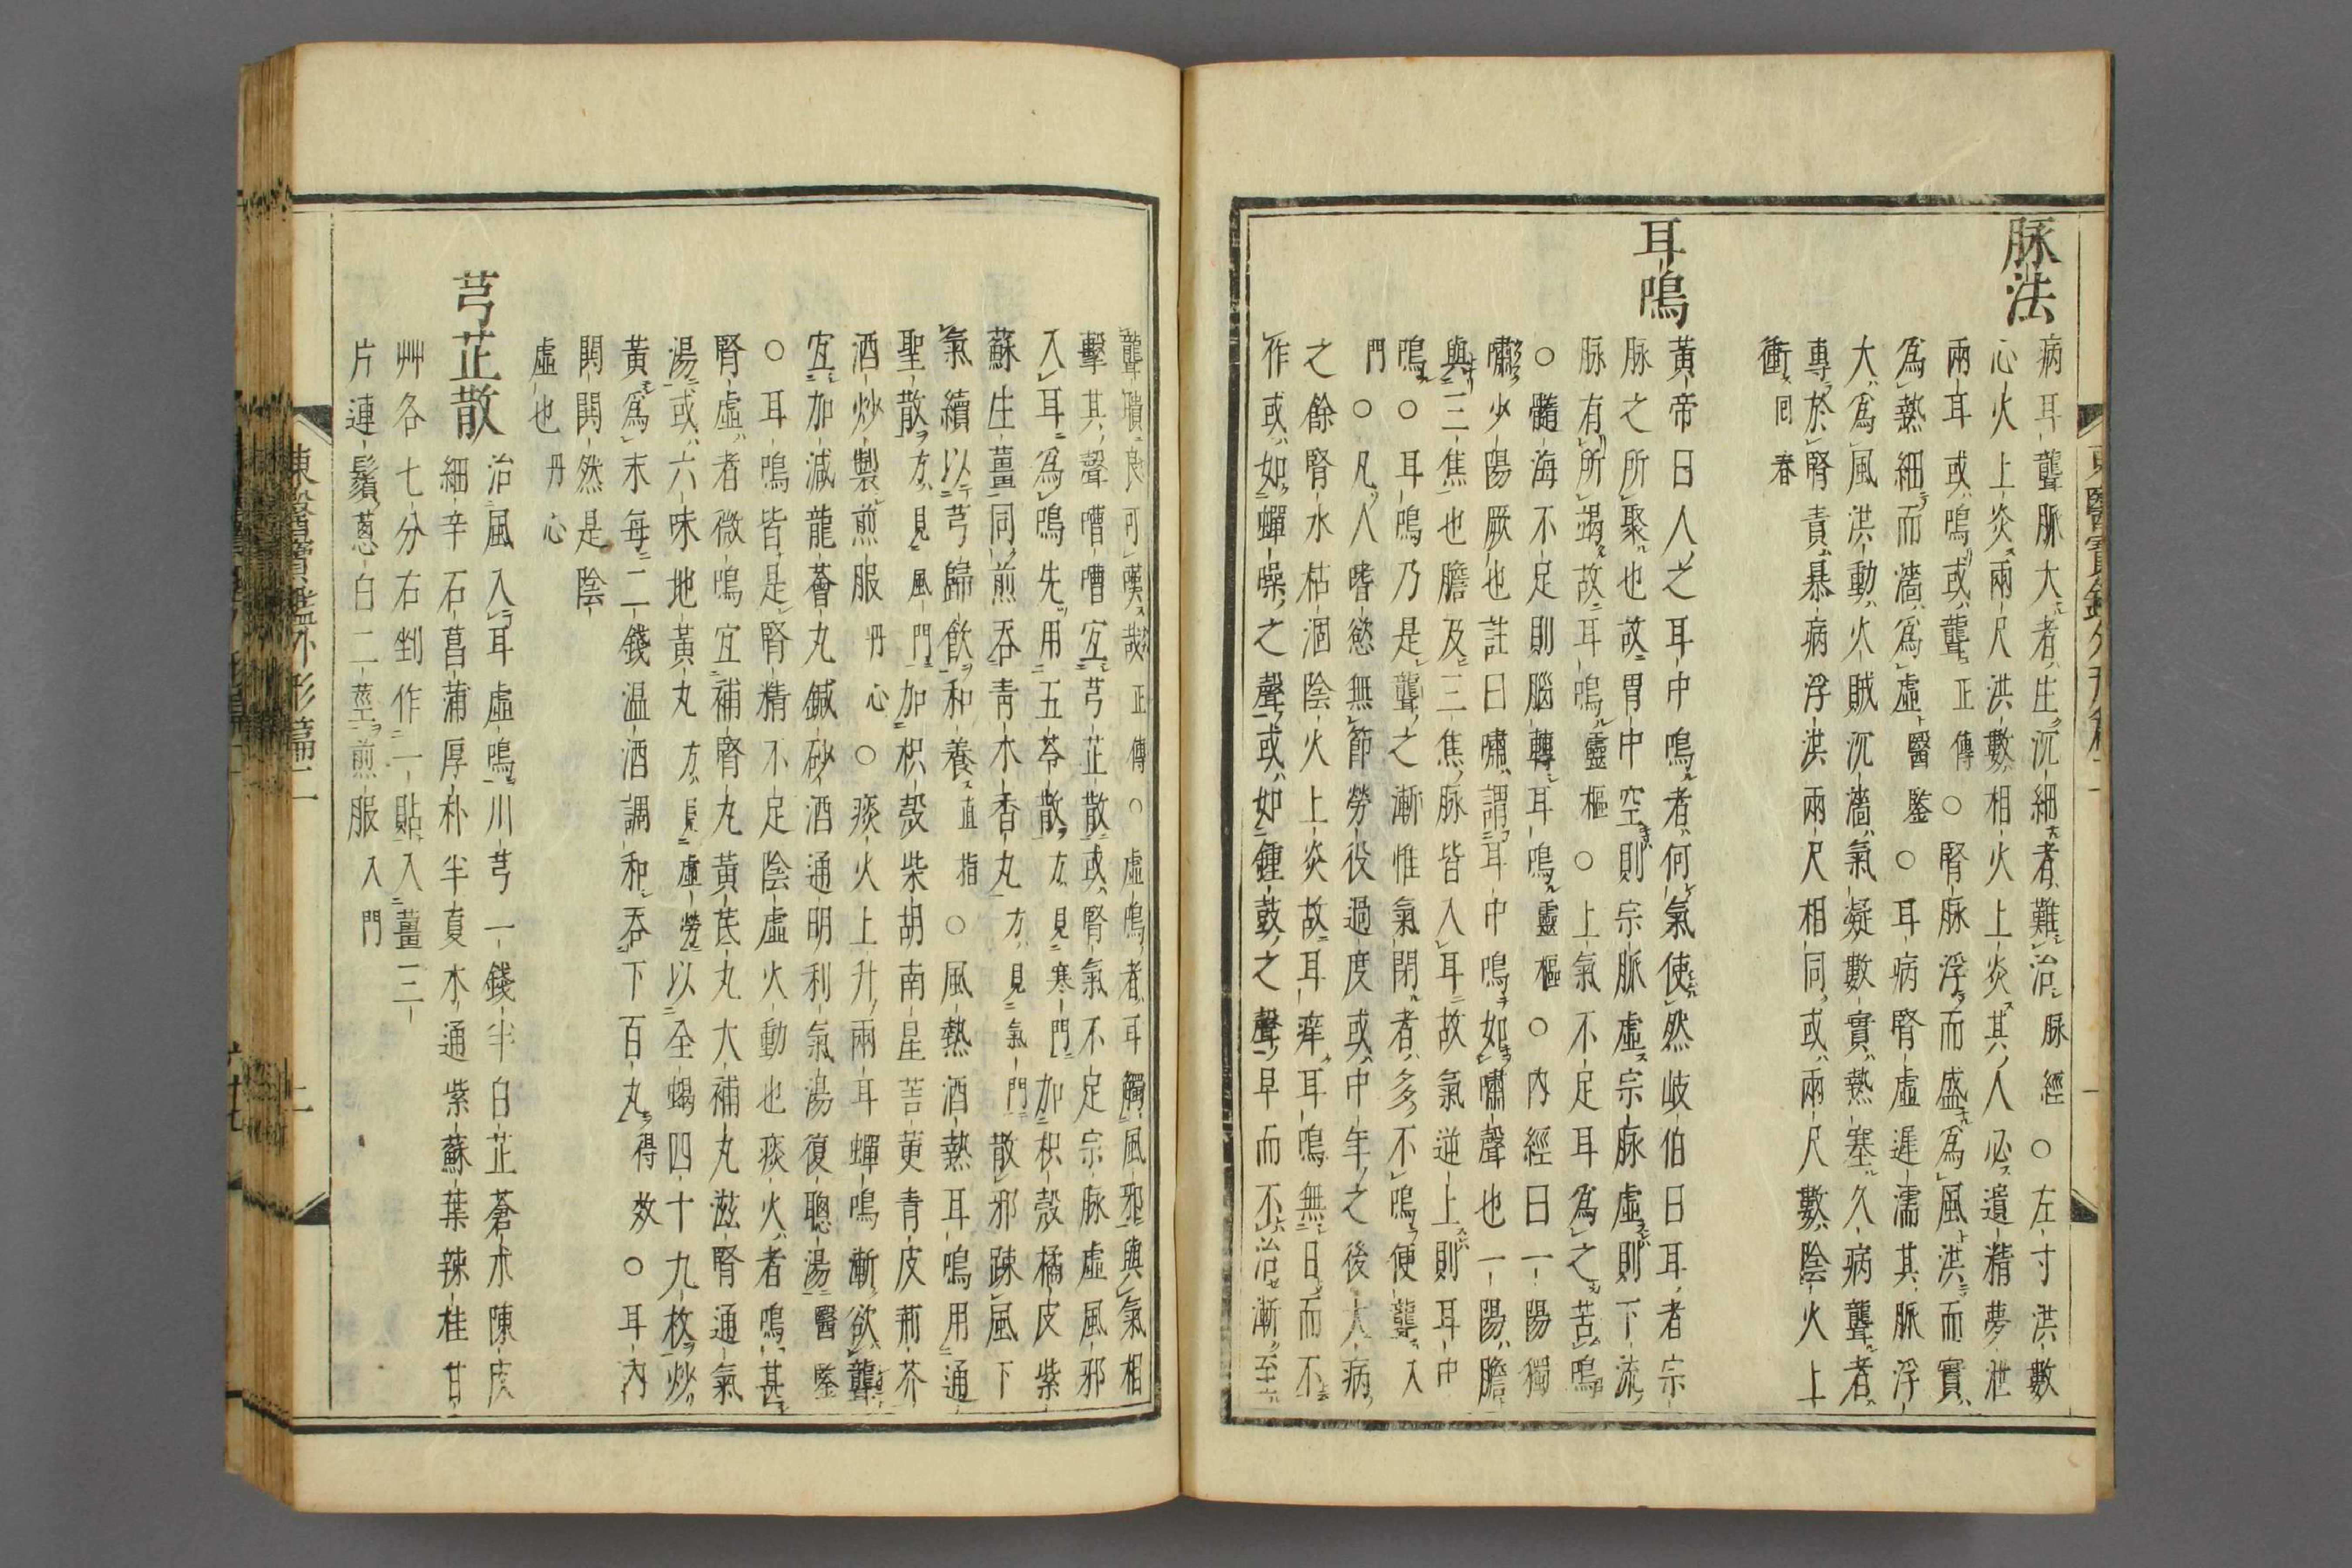 脉法
病耳聾脈大者生沉細者難治脉經○左寸洪數
心火上炎兩尺洪數相火上炎其人必遺精夢泄
兩耳或鳴或聾正傳○腎脉浮而盛爲風洪而實
爲熱細而濇爲虛醫鑒○耳病腎虛遲濡其脈浮
大爲風洪動火賊沉濇氣凝數實熱塞久病聾者
專於腎責暴病浮洪兩尺相同或兩尺數陰火上
衝回春
耳鳴
黃帝曰人之耳中鳴者何氣使然岐伯曰耳者宗
脉之所聚也故胃中空則宗脈虛宗脉虛則下流
脉有所竭故耳鳴靈樞○上氣不足耳爲之苦鳴
○髓海不足則腦轉耳鳴靈樞○內經曰一陽獨
嘯少陽厥也註曰嘯謂耳中鳴如嘯聲也一陽膽
與三焦也膽及三焦脉皆入耳故氣逆上則耳中
鳴○耳鳴乃是聾之漸惟氣閉者多不鳴便聾入
門○凡人嗜慾無節勞役過度或中年之後大病
之餘腎水枯涸陰火上炎故耳痒耳鳴無日而不
作或如蟬噪之聲或如鍾鼓之聲早而不治漸至
聾聵良可嘆哉正傳○虛鳴者耳觸風邪與氣相
擊其聲嘈嘈宜芎芷散或腎氣不足宗脉虛風邪
入耳爲鳴先用五苓散方見寒門加枳殼橘皮紫
蘇生薑同煎吞靑木香丸方見氣門散邪踈風下
氣續以芎歸飮和養直指○風熱酒熱耳鳴用通
聖散方見風門加枳殼柴胡南星苦莄靑皮荊芥
酒炒製煎服丹心○痰火上升兩耳蟬鳴漸欲聾
宜加減龍薈丸鍼砂酒通明利氣湯復聰湯醫鑒
○耳鳴皆是腎精不足陰虛火動也痰火者鳴甚
腎虛者微鳴宜補腎丸黃芪丸大補丸滋腎通氣
湯或六味地黃丸方見虛勞以全蝎四十九枚炒
黃爲末每二錢温酒調和吞下百丸得效○耳內
閧閧然是陰
虛也丹心
芎芷散
治風入耳虛鳴川芎一錢半白芷蒼朮陳皮
細辛石菖蒲厚朴半夏木通紫蘇葉辣桂甘
艸各七分右剉作一貼入薑三
片連鬚葱白二莖煎服入門
東醫寶鑑外形篇二